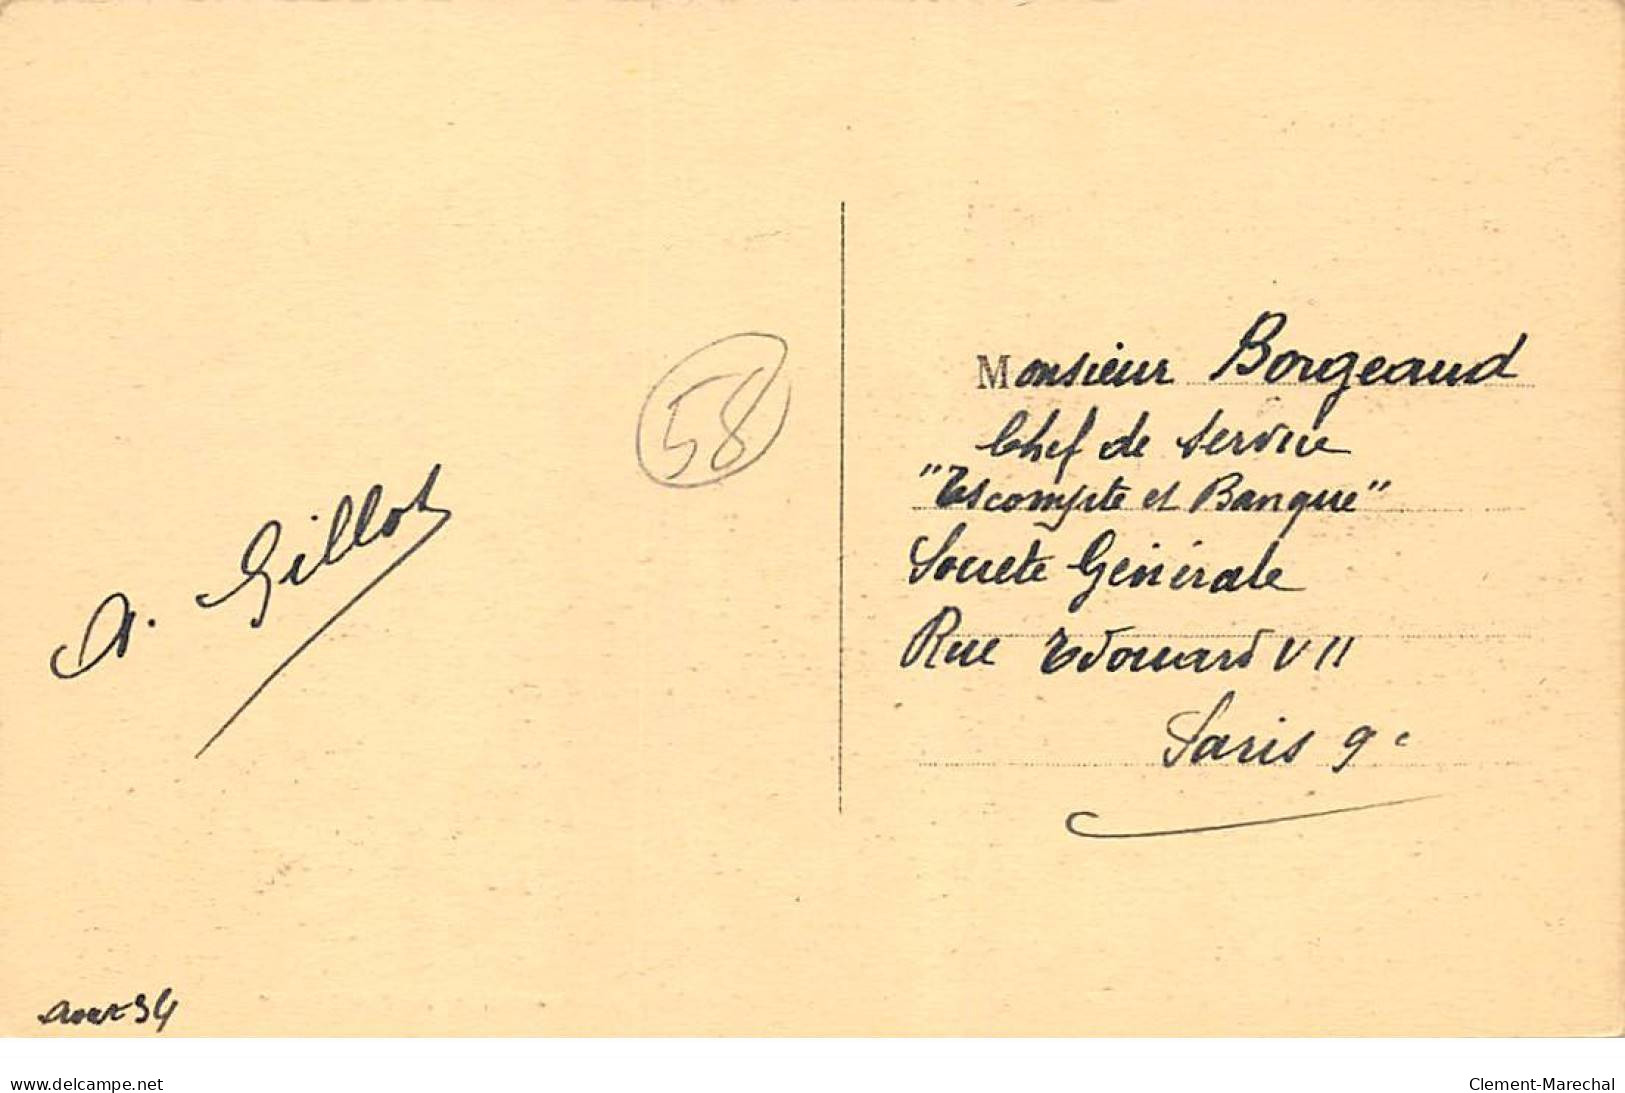 A. Gillot
58
Monsieur Borgeaud
Chef de Service
"Escompte et Banque"
Societe Générale
Rue Edouard VII
Paris 9e
Aout 34
www.delcampe.net
Clement-Marechal